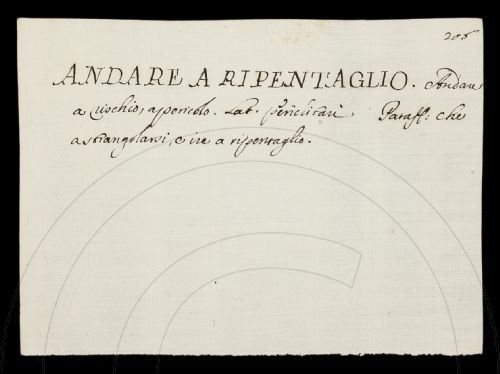 286
ANDARE A RIPENTAGLIO. Andare
a rischio, a pericolo. Lat. periclitari. Pataff: Che
a strangolarsi, e ire a ripentaglio.